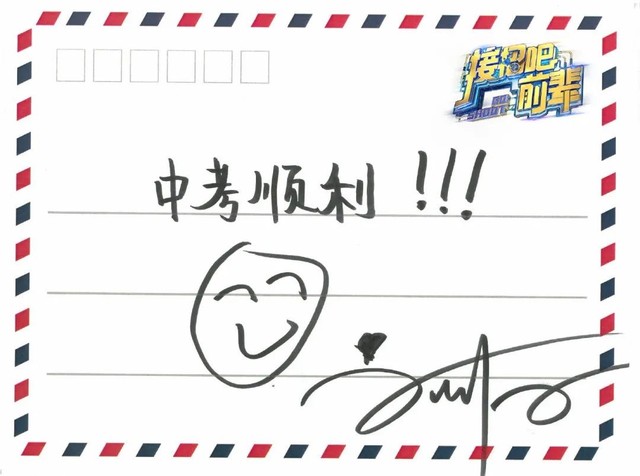 接招吧
前辈
GO
SHOOT
中考顺利!!!